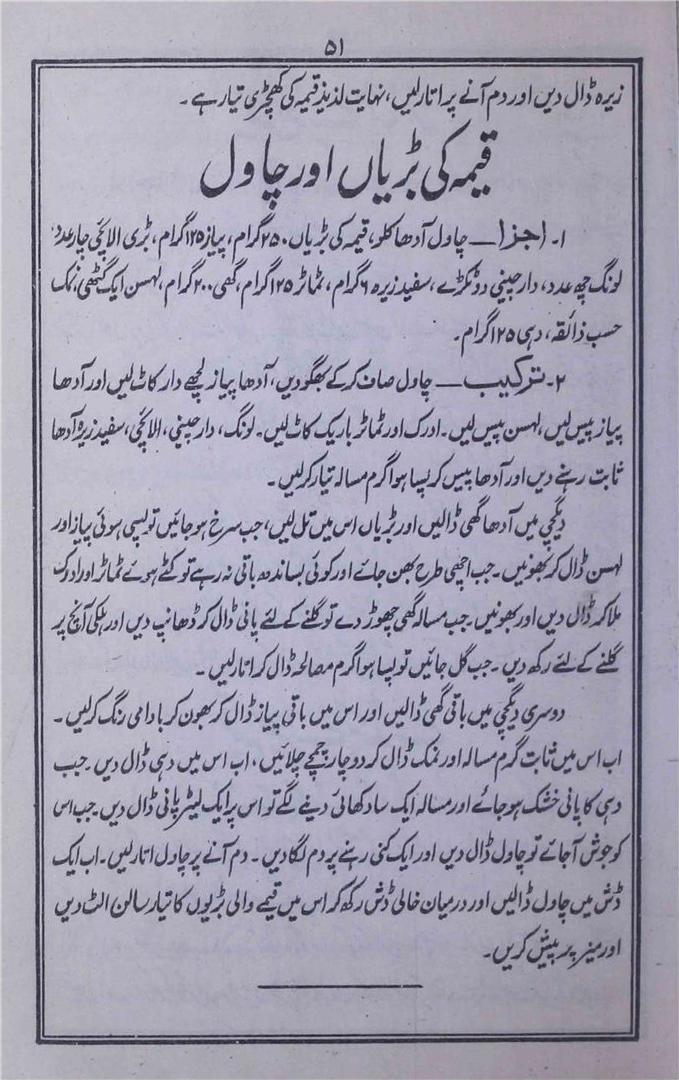 ۵۱
زیرہ ڈال دیں اور دم آنے پر اتار لیں، نہایت لذیذ قیمہ کی کھچڑی تیار ہے۔
قیمہ کی بڑیاں اور چاول
۱۔ اجزا — چاول آدھا کلو، قیمہ کی بڑیاں ۲۵۰ گرام، پیاز ۱۲۵ گرام، بڑی الائچی چار عدد،
لونگ چھ عدد، دار چینی دو ٹکڑے، سفید زیرہ ۶ گرام، ٹماٹر ۱۲۵ گرام، گھی ۲۰۰ گرام، لہسن ایک گٹھی، نمک
حسب ذائقہ، دہی ۱۲۵ گرام۔
۲۔ ترکیب — چاول صاف کر کے بھگو دیں، آدھا پیاز لچھے دار کاٹ لیں اور آدھا
پیاز پیس لیں، لہسن پیس لیں۔ ادرک اور ٹماٹر باریک کاٹ لیں۔ لونگ، دار چینی، الائچی، سفید زیرہ آدھا
ثابت رہنے دیں اور آدھا پیس کر پسا ہوا گرم مسالہ تیار کر لیں۔
دیگچی میں آدھا گھی ڈالیں اور بڑیاں اس میں تل لیں، جب سرخ ہو جائیں تو پسی ہوئی پیاز اور
لہسن ڈال کر بھونیں۔ جب اچھی طرح بھن جائے اور کوئی بساندھ باقی نہ رہے تو کٹے ہوئے ٹماٹر اور ادرک
ملا کر ڈال دیں اور بھونیں۔ جب مسالہ گھی چھوڑ دے تو گلنے کے لئے پانی ڈال کر ڈھانپ دیں اور ہلکی آنچ پر
گلنے کے لئے رکھ دیں۔ جب گل جائیں تو پسا ہوا گرم مصالحہ ڈال کر اتار لیں۔
دوسری دیگچی میں باقی گھی ڈالیں اور اس میں باقی پیاز ڈال کر بھون کر بادامی رنگ کر لیں۔
اب اس میں ثابت گرم مسالہ اور نمک ڈال کر دو چار چمچے چلائیں، اب اس میں دہی ڈال دیں۔ جب
دہی کا پانی خشک ہو جائے اور مسالہ ایک سا دکھائی دینے لگے تو اس پر ایک لیٹر پانی ڈال دیں۔ جب اس
کو جوش آ جائے تو چاول ڈال دیں اور ایک کنی رہنے پر دم لگا دیں۔ دم آنے پر چاول اتار لیں۔ اب ایک
ڈش میں چاول ڈالیں اور درمیان خالی ڈش رکھ کر اس میں قیمے والی بڑیوں کا تیار سالن الٹ دیں
اور میز پر پیش کریں۔